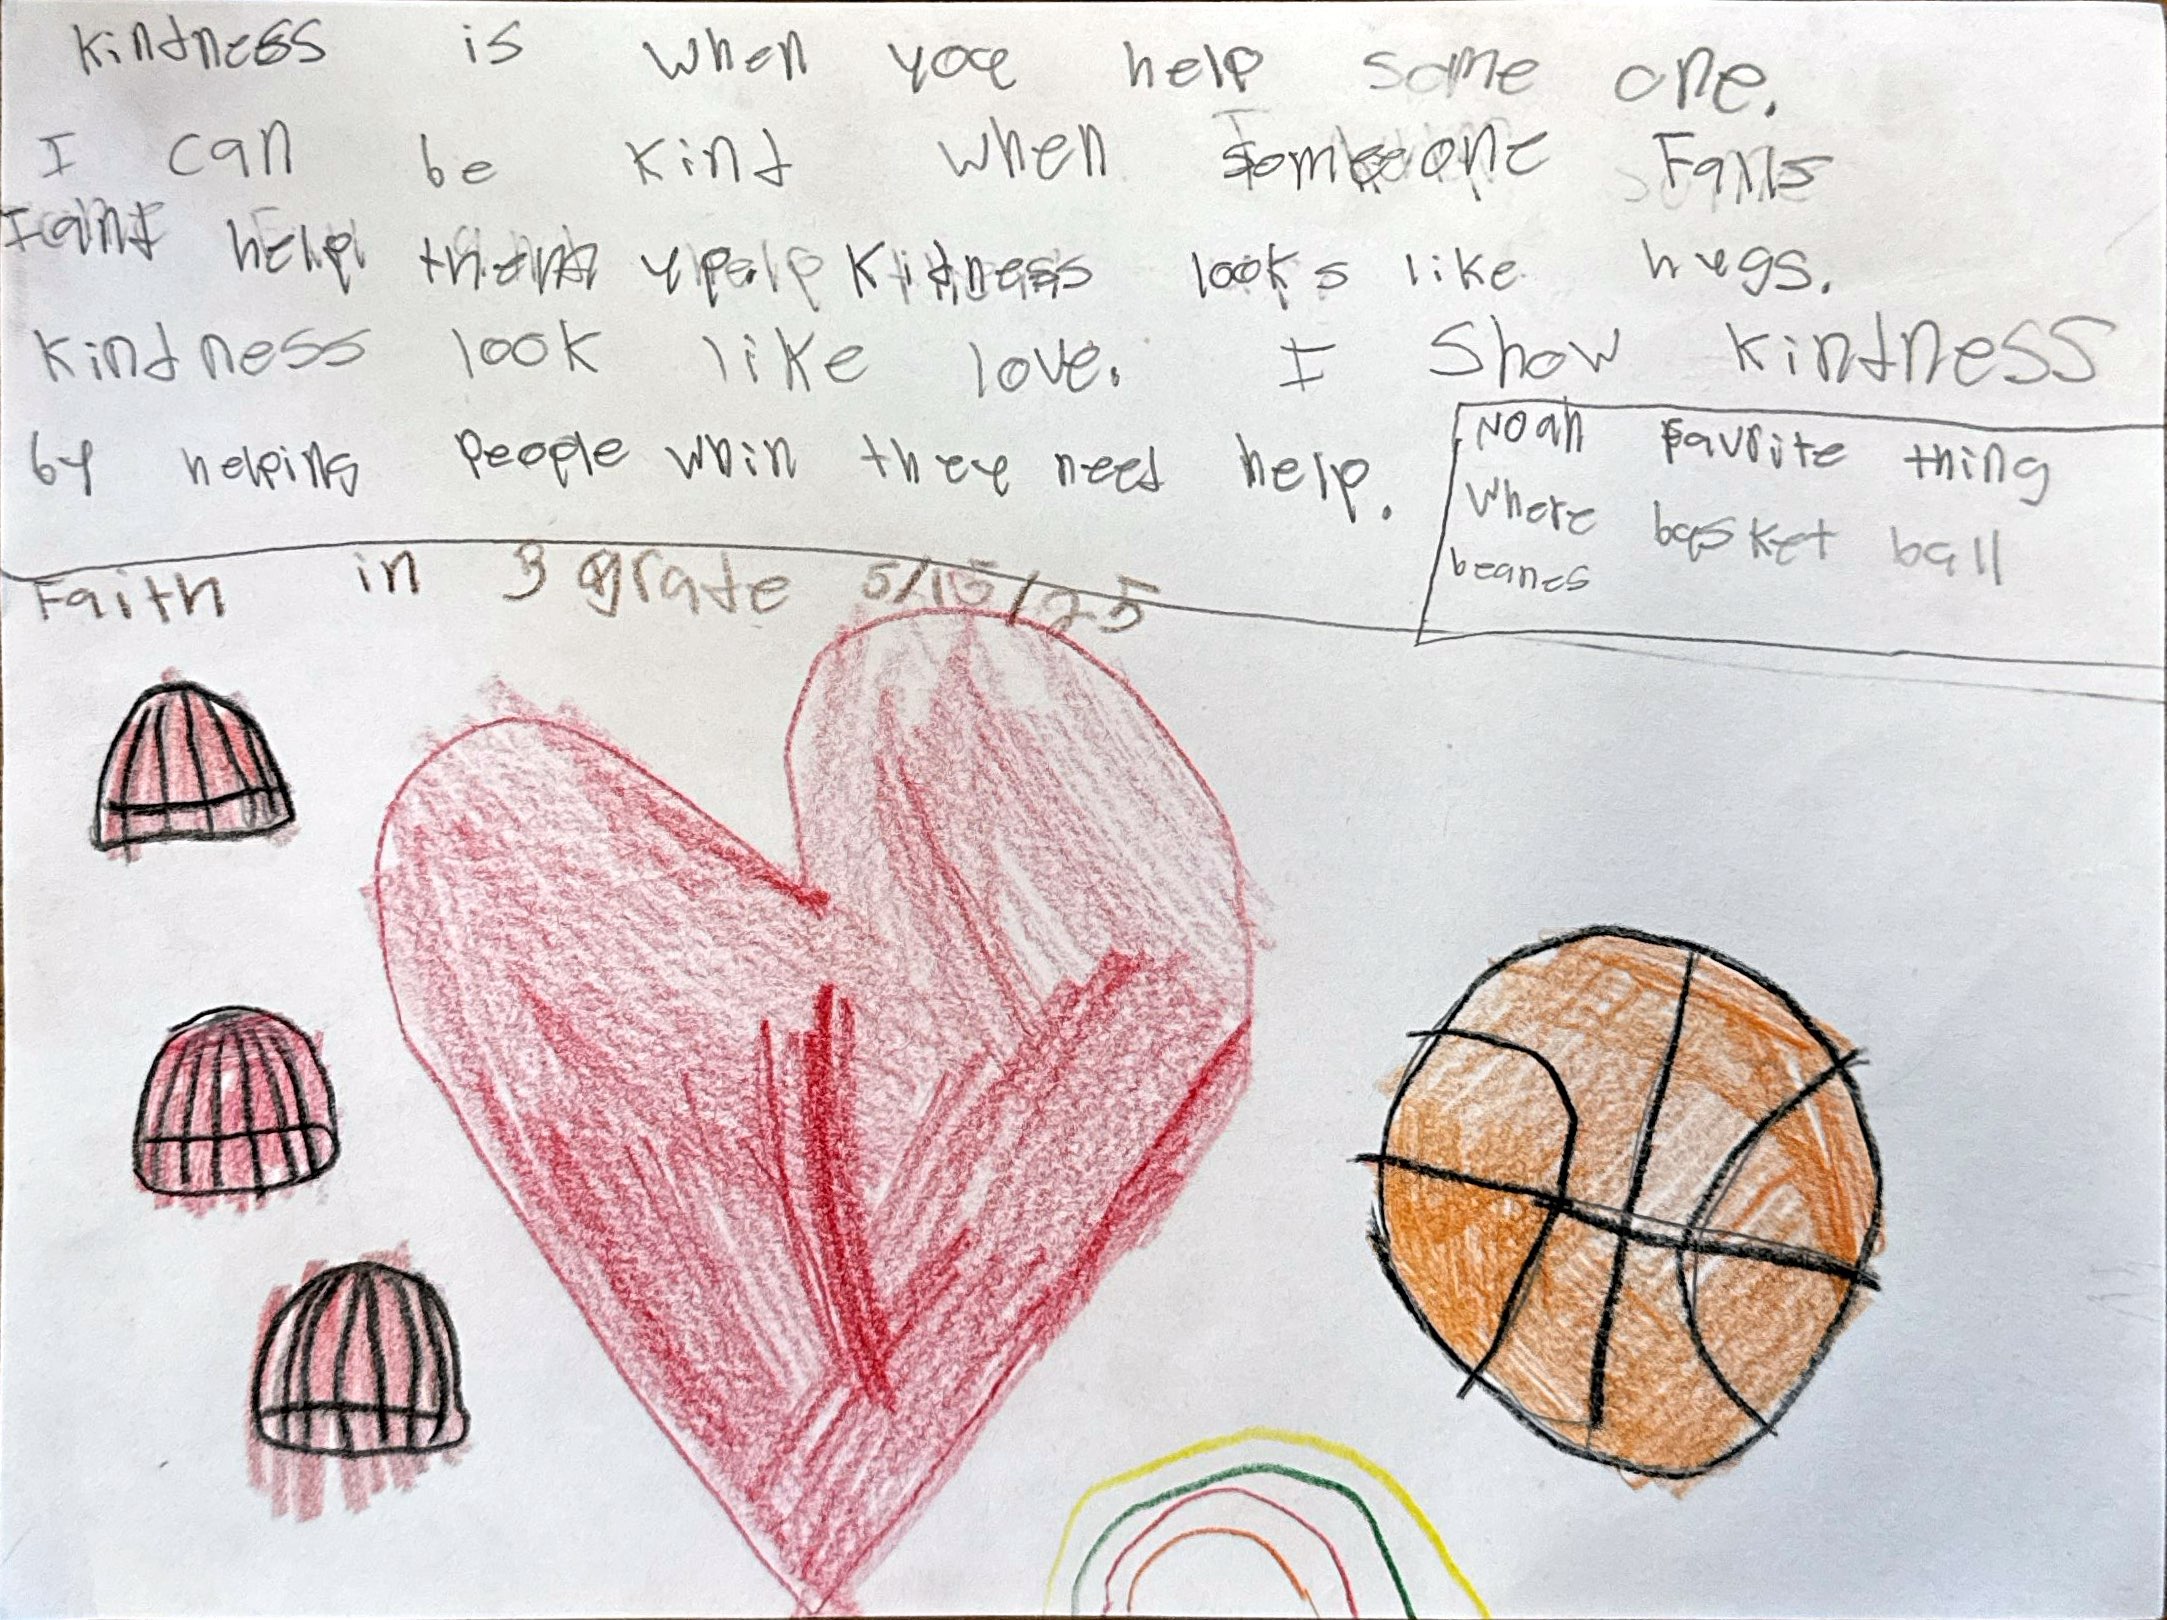 Kindness is when you help some one.
I can be kind when someone Falls
I help them up Kidness looks like hugs.
Kindness look like love. I show kindness
by helping people whin they need help.
Noah Favrite thing
Where basket ball
beanes
Faith in 3 grate 5/15/25